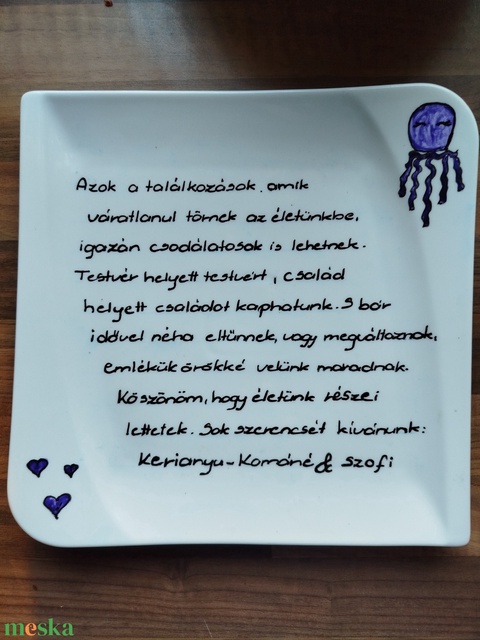 Azok a találkozások, amik
váratlanul törnek az életünkbe,
igazán csodálatosak is lehetnek.
Testvér helyett testvért, család
helyett családot kaphatunk. S bár
idővel néha eltűnnek, vagy megváltoznak,
emlékük örökké velünk maradnak.
Köszönöm, hogy életünk részei
lettetek. Sok szerencsét kívánunk:
Kerianyu-Kománé & Szofi
meska